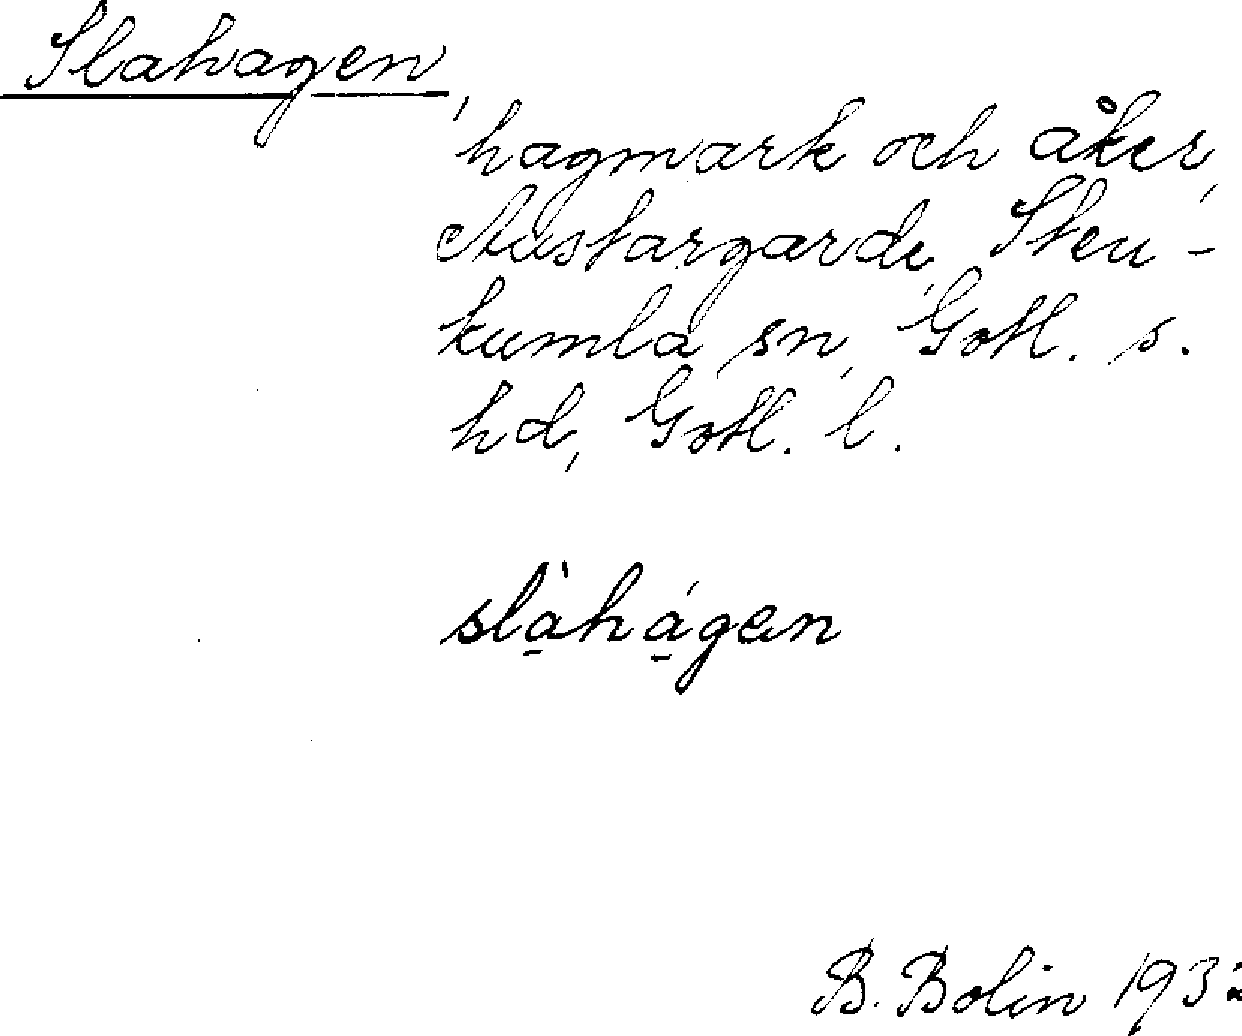 Slahagen,
hagmark och åker,
Austargarde, Sten-
kumla sn, Gotl. s.
hd, Gotl. l.
slàhágan
B. Bolin 1932